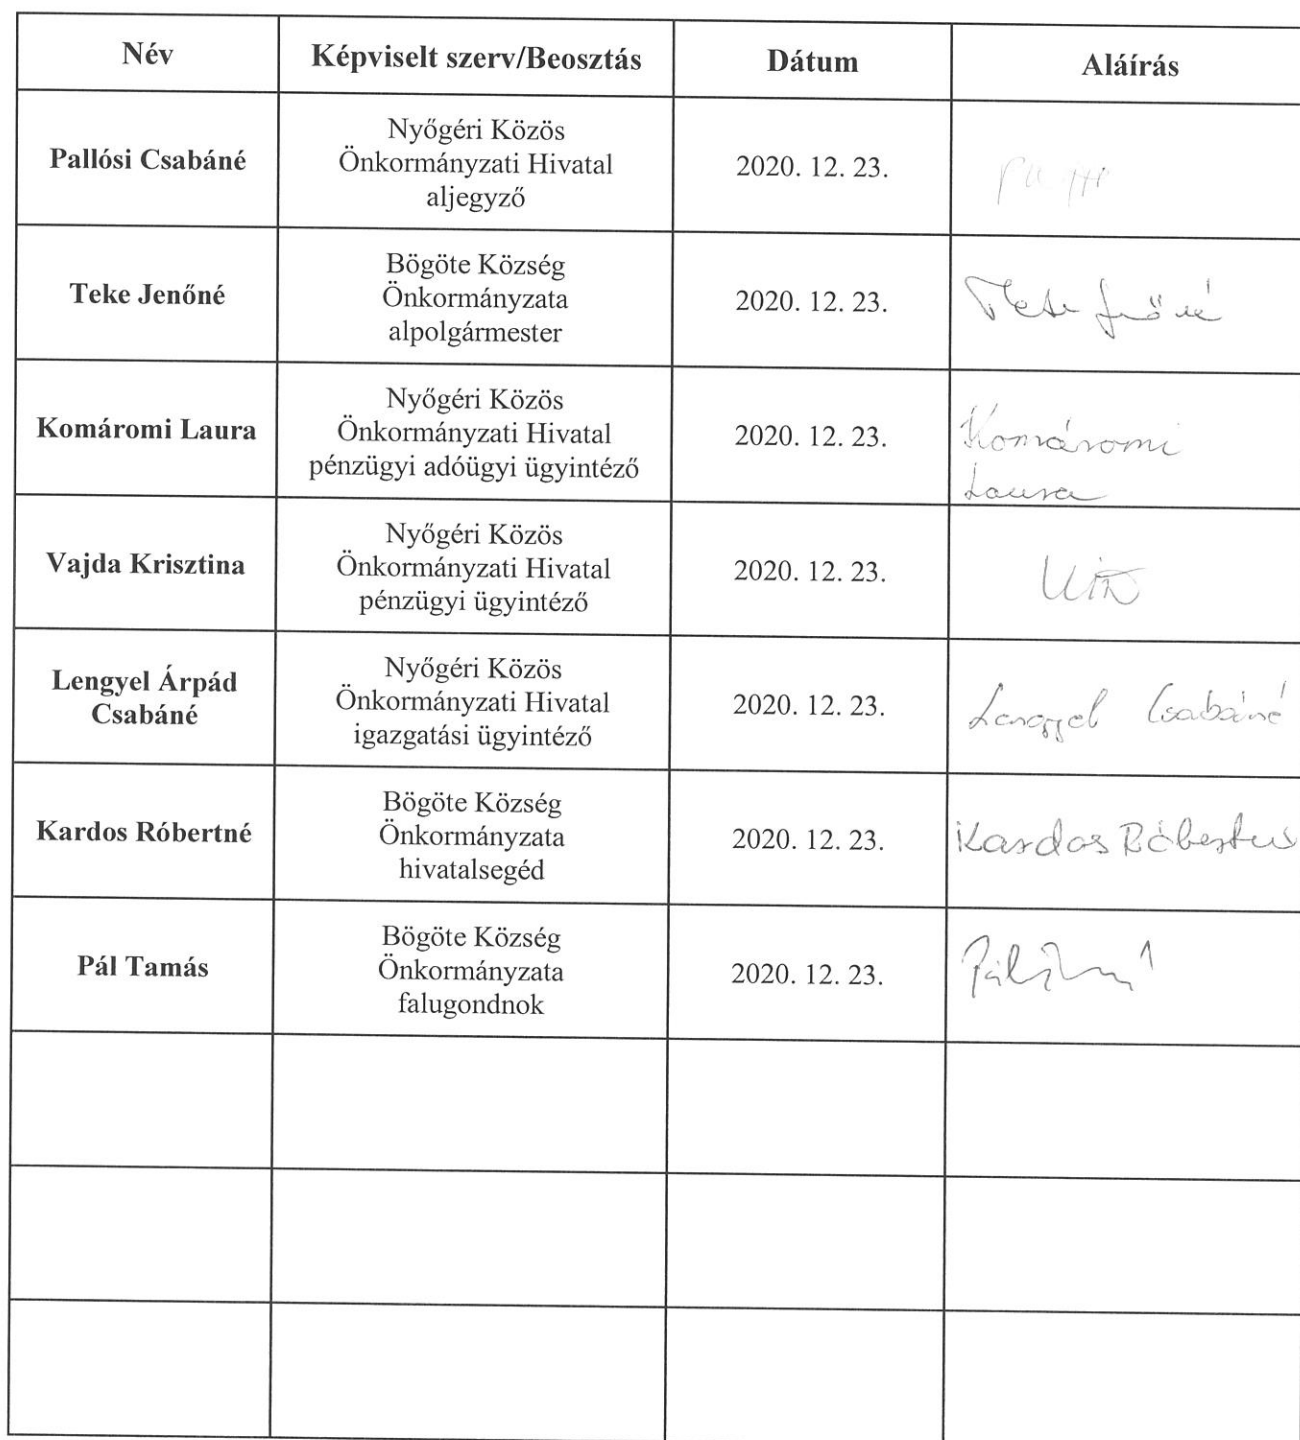 Név
Képviselt szerv/Beosztás
Dátum
Aláírás
Pallósi Csabáné
Nyőgéri Közös
Önkormányzati Hivatal
aljegyző
2020. 12. 23.
Teke Jenőné
Bögöte Község
Önkormányzata
alpolgármester
2020. 12. 23.
Teke Jenőné
Komáromi Laura
Nyőgéri Közös
Önkormányzati Hivatal
pénzügyi adóügyi ügyintéző
2020. 12. 23.
Komáromi
Laura
Vajda Krisztina
Nyőgéri Közös
Önkormányzati Hivatal
pénzügyi ügyintéző
2020. 12. 23.
Lengyel Árpád
Csabáné
Nyőgéri Közös
Önkormányzati Hivatal
igazgatási ügyintéző
2020. 12. 23.
Lengyel Csabáné
Kardos Róbertné
Bögöte Község
Önkormányzata
hivatalsegéd
2020. 12. 23.
Kardos Róbertné
Pál Tamás
Bögöte Község
Önkormányzata
falugondnok
2020. 12. 23.
Pál